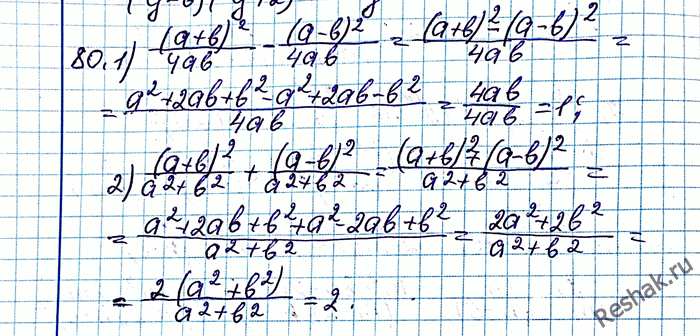 80.1) (a+b)²/4ab - (a-b)²/4ab = (a+b)²-(a-b)²/4ab =
= a²+2ab+b²-a²+2ab-b²/4ab = 4ab/4ab = 1;
2) (a+b)²/a²+b² + (a-b)²/a²+b² = (a+b)²+(a-b)²/a²+b² =
= a²+2ab+b²+a²-2ab+b²/a²+b² = 2a²+2b²/a²+b² =
= 2(a²+b²)/a²+b² = 2.
Reshak.ru